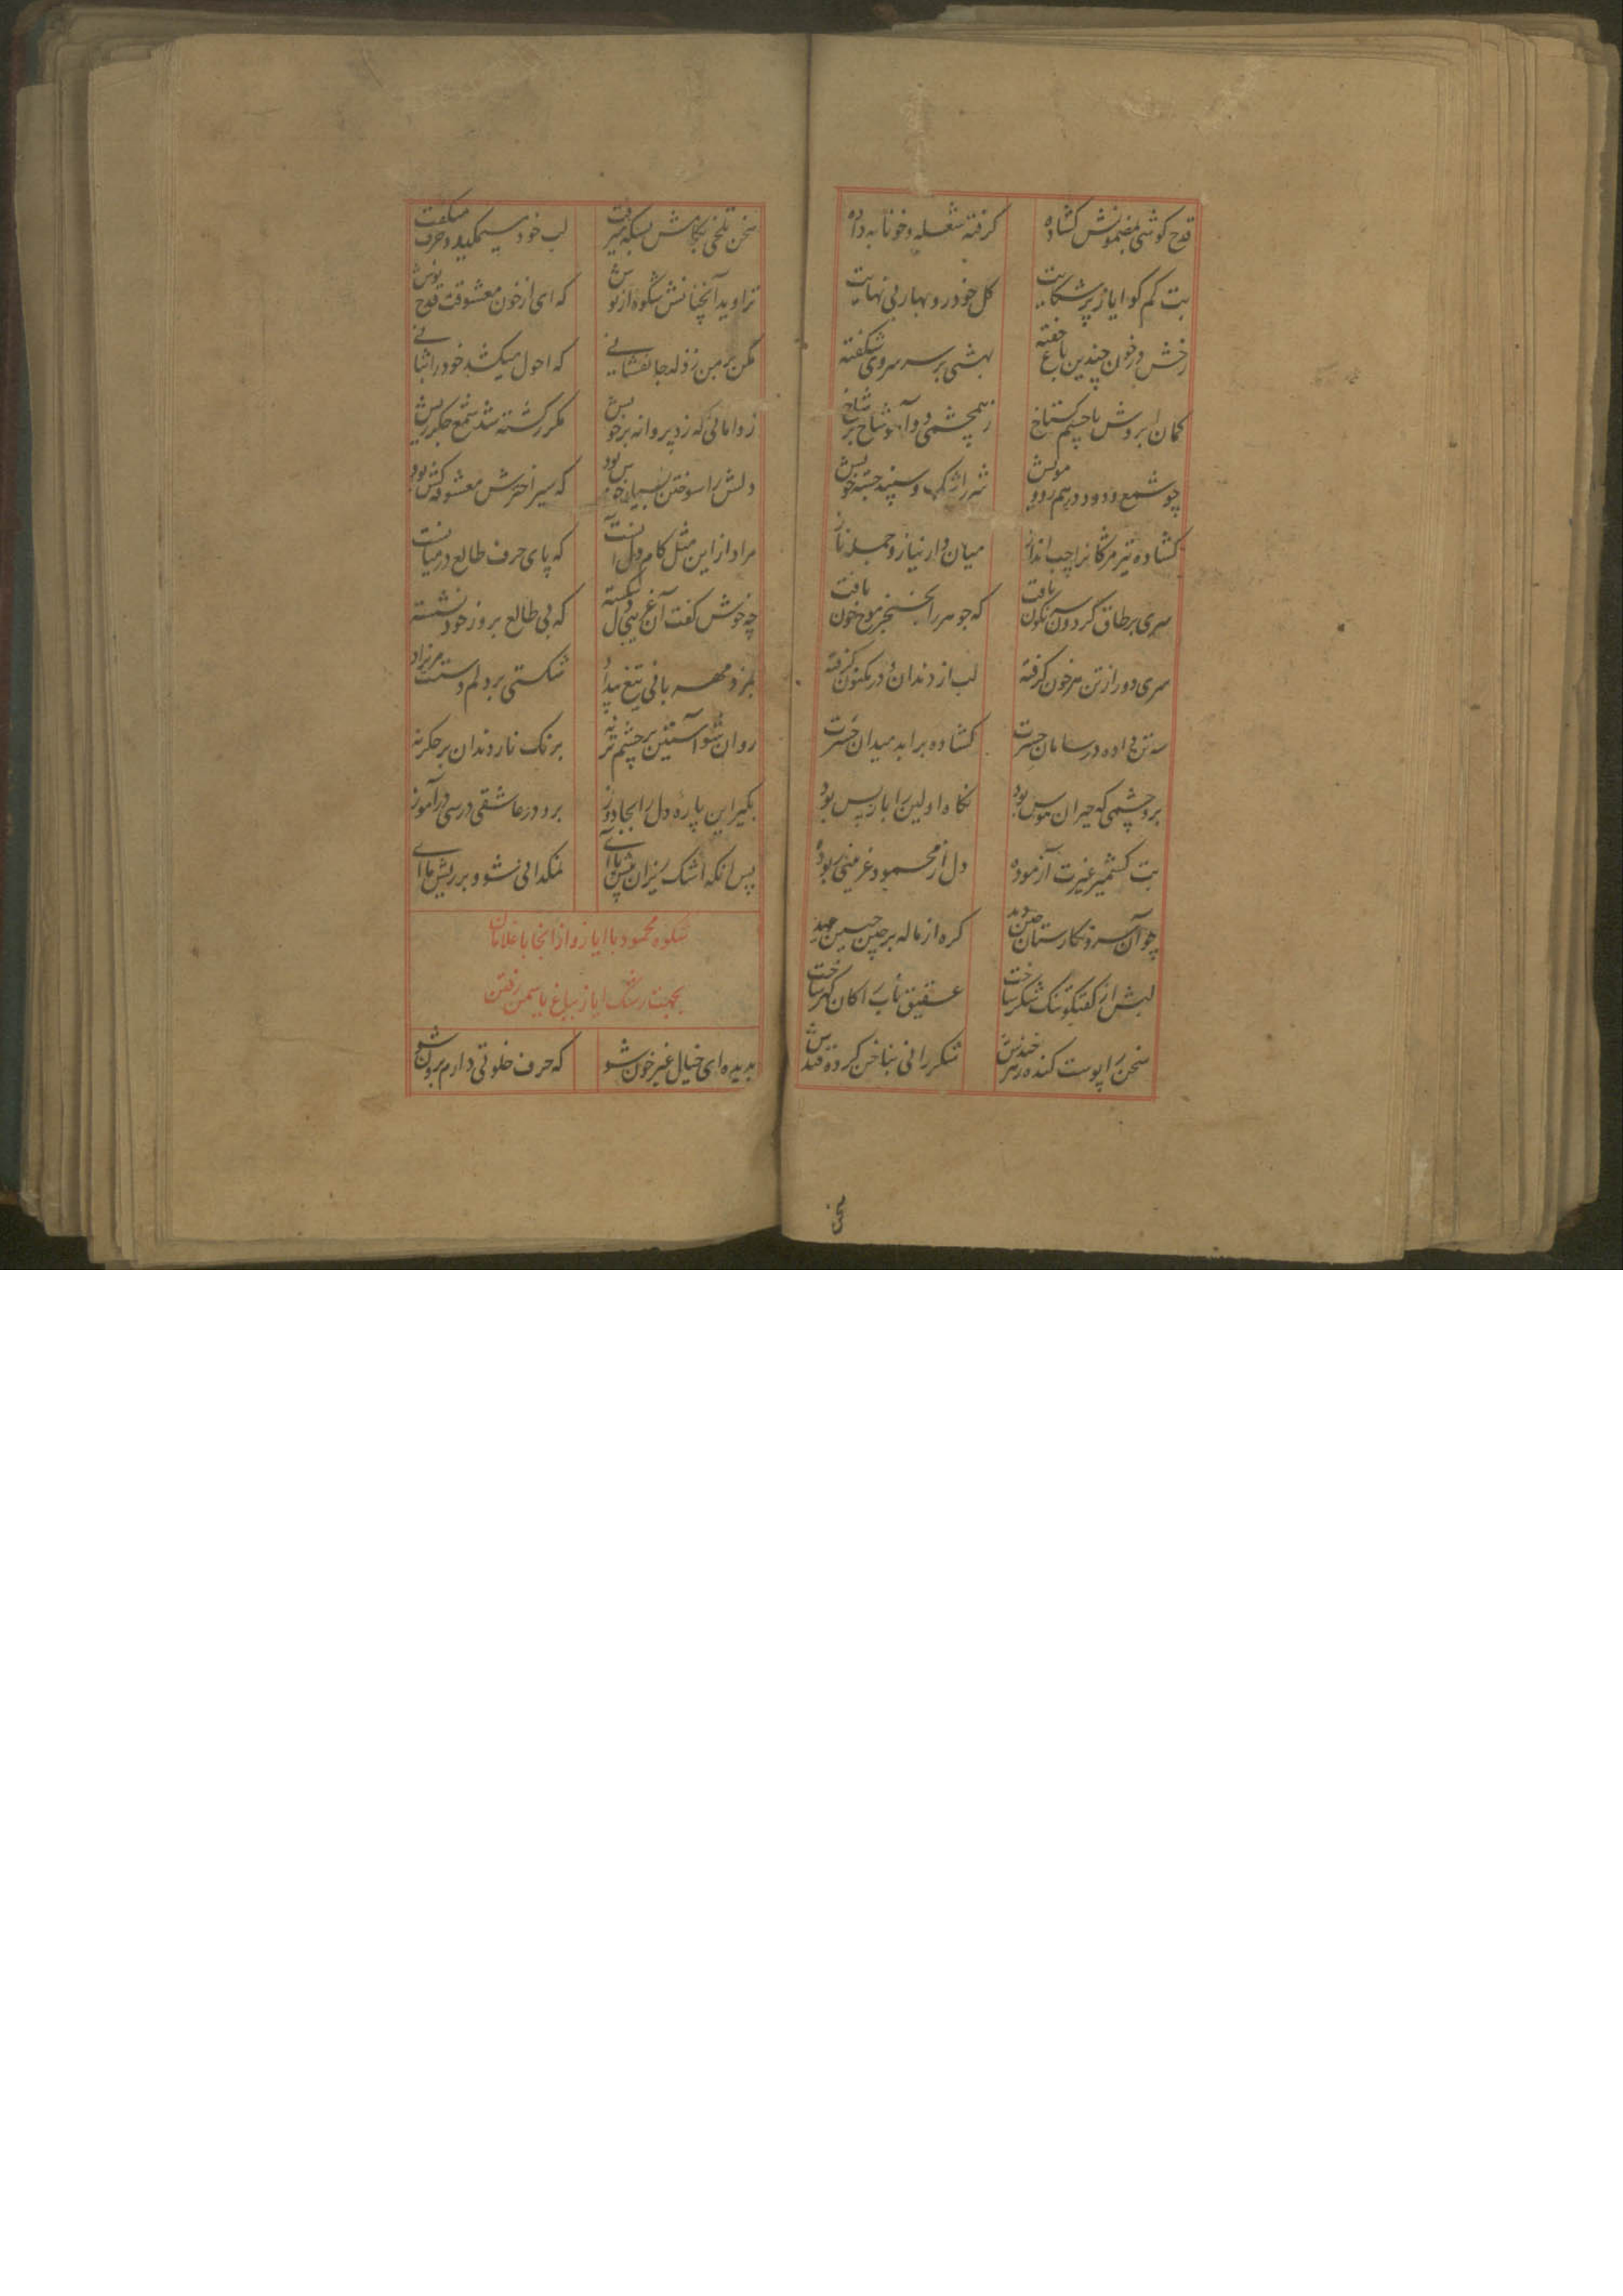 قدح کوشی بمضمونش کشاده کرفته شعله و خونابه داده
بت کم کو ایاز پرشکایت کل خودرو بهار بی نهایت
رخش در خون چندین باغ خفته بهشتی بر سر سروی شکفته
کمان ابروش با چشم کستاخ ز همچشمی دو آهو شاخ بر شاخ
چو شمع و دود درهم رو و مویش شرر اشک و سپند جسته خویش
کشاده تیر مژکانرا چپ انداز میان دار نیاز و جمله ناز
سری بر طاق کردون سرنگون یافت که جوهر را بخنجر موج خون یافت
سری دور از تن هر خون کرفته لب از دندان در مکنون کرفته
سه تن داده در سامان حسرت کشاده برابد میدان حسرت
برو چشمی که حیران هوس بود نکاه اولین را باز پس بود
بت کشمیر غیرت آزموده دل از محمود غزنینی ربوده
چو آن سرو نکارستان چین دید کره از ماله بر چین جبین دید
لبش از کفتکو تنک شکر ساخت عقیق ناب را کان کهر ساخت
سخن را پوست کنده زهر خندش شکر رانی بناخن کرده قندش
سخن
سخن تلخی بکامش بسکه میرفت لب خود میمکید و حرف میکفت
تراوید آنچنانش شکوه از نوش که ای از خون معشوقت قدح نوش
مکن بر من ز ذله جانفشانی که احول میکشد خود را ثنائی
ز دامانی که زد پروانه بر خویش مکرر کشته شد شمع جکر ریش
دلش را سوختن بسیار خوش بود که سیر اخترش معشوقه کش بود
مراد از این مثل کام دل آنست که پای حرف طالع در میانست
چه خوش کفت آن غریبی دل شکسته که بی طالع بروز خود نشسته
بمزد مهربانی تیغ بیداد شکستی بر دلم دست مریزاد
روان شو آستین بر چشم تر نه برنک نار دندان بر جکر نه
بکیر این پاره دل را بجا دوز برو در عاشقی درسی در آموز
پس انکه اشک ریزان پیش ما آی نمکدانی شو و بر ریش ما آی
شکوه محمود با ایاز و از آنجا با غلامان
بجهت رشک ایاز بباغ یاسمن رفتن
بدیده ای خیال غیر خون شو که حرف خلوتی دارم برون شو